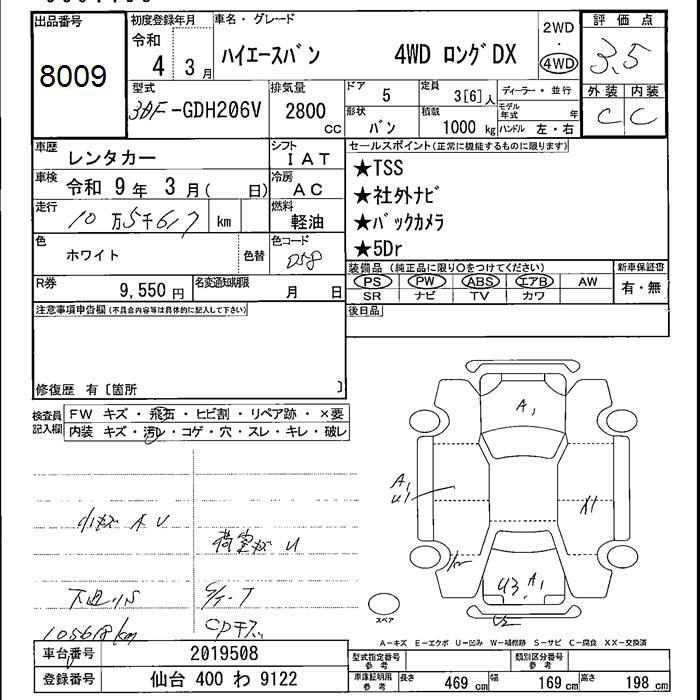 出品番号
8009
初度登録年月
令和
4 3月
車名・グレード
ハイエースバン 4WD ロングDX
2WD
・
4WD
評価点
3.5
外装 内装
C C
型式
3DF-GDH206V
排気量
2800
cc
ドア 5
定員 3[6]人
形状 バン
積載 1000 kg
ディーラー・並行
モデル年式 年
ハンドル 左・右
車歴 レンタカー
シフト IAT
車検 令和 9年 3月( 日)
冷房 AC
走行 10万5千617 km
燃料 軽油
色 ホワイト
色替
色コード 058
R券 9,550円
名変通知期限 月 日
セールスポイント(正常に機能するものに限ります)
★TSS
★社外ナビ
★バックカメラ
★5Dr
装備品 (純正品に限り○をつけてください)
新車保証書
PS PW ABS エアB AW
有・無
SR ナビ TV カワ
後日品
注意事項申告欄(不具合内容等は具体的に記入して下さい)
修復歴 有〔箇所 〕
検査員記入欄
FW キズ・飛石・ヒビ割・リペア跡・×要
内装 キズ・汚レ・コゲ・穴・スレ・キレ・破レ
小キズ A U
荷室キズ U
下廻りS
105618km
A1
A1
U1
X1
U3 A1
U2
スペア
A-キズ E-エクボ U-凹み W-補修跡 S-サビ C-腐食 XX-交換済
車台番号 2019508
登録番号 仙台 400 わ 9122
型式指定番号
参考
類別区分番号
参考
車庫証明用
参考
長さ 469cm 幅 169cm 高さ 198cm